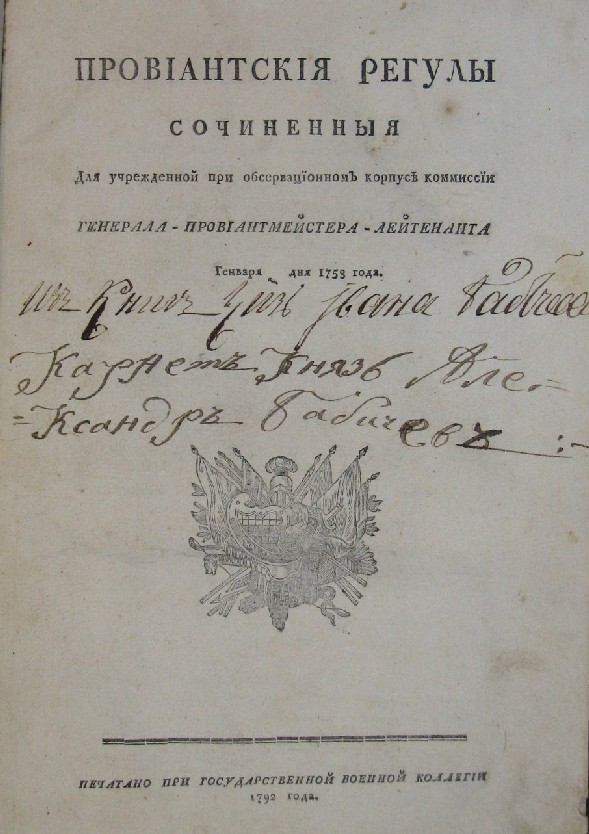 ПРОВІАНТСКІЯ РЕГУЛЫ
СОЧИНЕННЫЯ
Для учрежденной при обсерваціонномъ корпусѣ коммиссіи
ГЕНЕРАЛА - ПРОВІАНТМЕЙСТЕРА - ЛЕЙТЕНАНТА
Генваря дня 1758 года.
Изъ Книгъ Ивана
Карнетъ Князь Але=
=Ксандръ Бабичевъ :-
ПЕЧАТАНО ПРИ ГОСУДАРСТВЕННОЙ ВОЕННОЙ КОЛЛЕГІИ
1792 года.